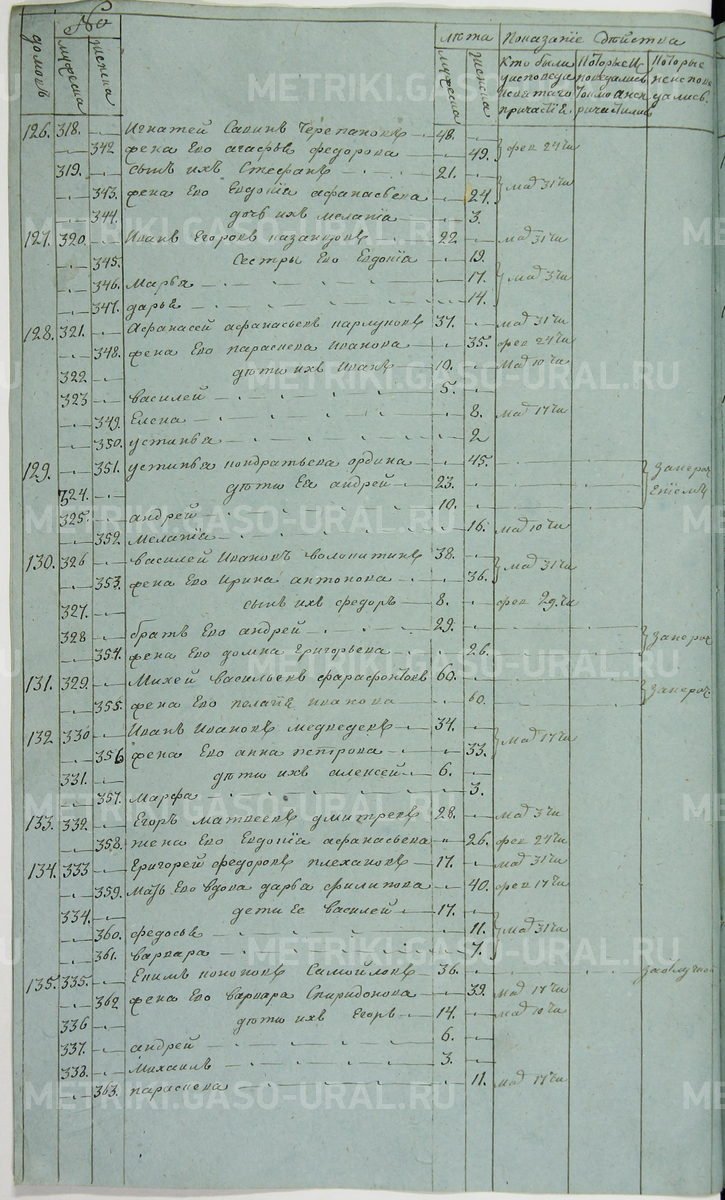 No лѣта Показанiе Дѣйства
домовъ мужеска женска мужеска женска Кто были у исповеди и святаго причастiя Которые исповедались Которые не исповедались
126. 318. Игнатей Савинъ Черепановъ 48.
342. жена Ево агафья федорова 49. фев 24 чи
319. сынъ ихъ Стефанъ 21.
343. жена Ево Евдокiя афанасьева 24. маǀ 31 чи
344. дочь ихъ мелания 3.
127. 320. Иванъ Егоровъ казанцовъ 22 мар 31 чи
345. Сестры Ево Евдокiя 19.
346. Марья 17. мар 3 чи
347. дарья 14.
128. 321. Афанасей афанасьевъ 37. мар 31 чи
348. жена Ево параскева Иванова 35. фев 24 чи
322. дѣти ихъ Иванъ 10. мар 10 чи
323 василей 5.
349. Елена 8. мар 17 чи
350. устинья 2
129. 351. устинья кондратьева ордина 45.
324. дѣти Ея андрей 23.
325. андрей 10.
352. Меланiя 16. мар 10 чи
130. 326 василей Ивановъ волокитинъ 38.
353. жена Ево Ирина антонова 36. мар 31 чи
327. сынъ ихъ федоръ 8. фев 29 чи
328 братъ Ево андрей 29.
354. жена Ево домна Григорьева 26.
131. 329. Михей васильевъ фарафонтовъ 60.
355. жена Ево пелагея иванова 60.
132 330 Иванъ Ивановъ медведевъ 34.
356 жена Ево анна петрова 33. мар 17 чи
331. дѣти ихъ алексей 6.
357. Марфа 3.
133. 332. Егоръ матвеевъ дмитревъ 28. мар 3 чи
358. жена Ево Евдокiя афанасьева 26. фев 24 чи
134. 333 Григорей федоровъ плехановъ 17. мар 31 чи
359. Мать Ево вдова дарья филипова 40. фев 17 чи
334. дети Ее василей 17.
360. федосья 11. мар 31 чи
361. варвара 7.
135. 335. Екимъ кононовъ Самойловъ 36.
362 жена Ево варвара Спиридонова 39. мар 17 чи
336 дѣти ихъ Егоръ 14. мар 10 чи
337. андрей 6.
338. Михаилъ 3.
363. параскева 11. мар 17 чи
METRIKI.GASO-URAL.RU